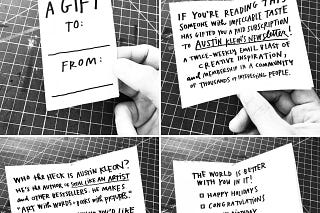 A GIFT
TO:
FROM:
IF YOU'RE READING THIS
SOMEONE WITH IMPECCABLE TASTE
HAS GIFTED YOU A PAID SUBSCRIPTION
TO AUSTIN KLEON'S NEWSLETTER!
A TWICE-WEEKLY EMAIL BLAST OF
CREATIVE INSPIRATION,
AND MEMBERSHIP IN A COMMUNITY
OF THOUSANDS OF INTERESTING PEOPLE.
WHO THE HECK IS AUSTIN KLEON?
HE'S THE AUTHOR OF STEAL LIKE AN ARTIST
AND OTHER BESTSELLERS. HE MAKES
"ART WITH WORDS + BOOKS WITH PICTURES."
YOU'D LIKE
THE WORLD IS BETTER
WITH YOU IN IT!
HAPPY HOLIDAYS
CONGRATULATIONS